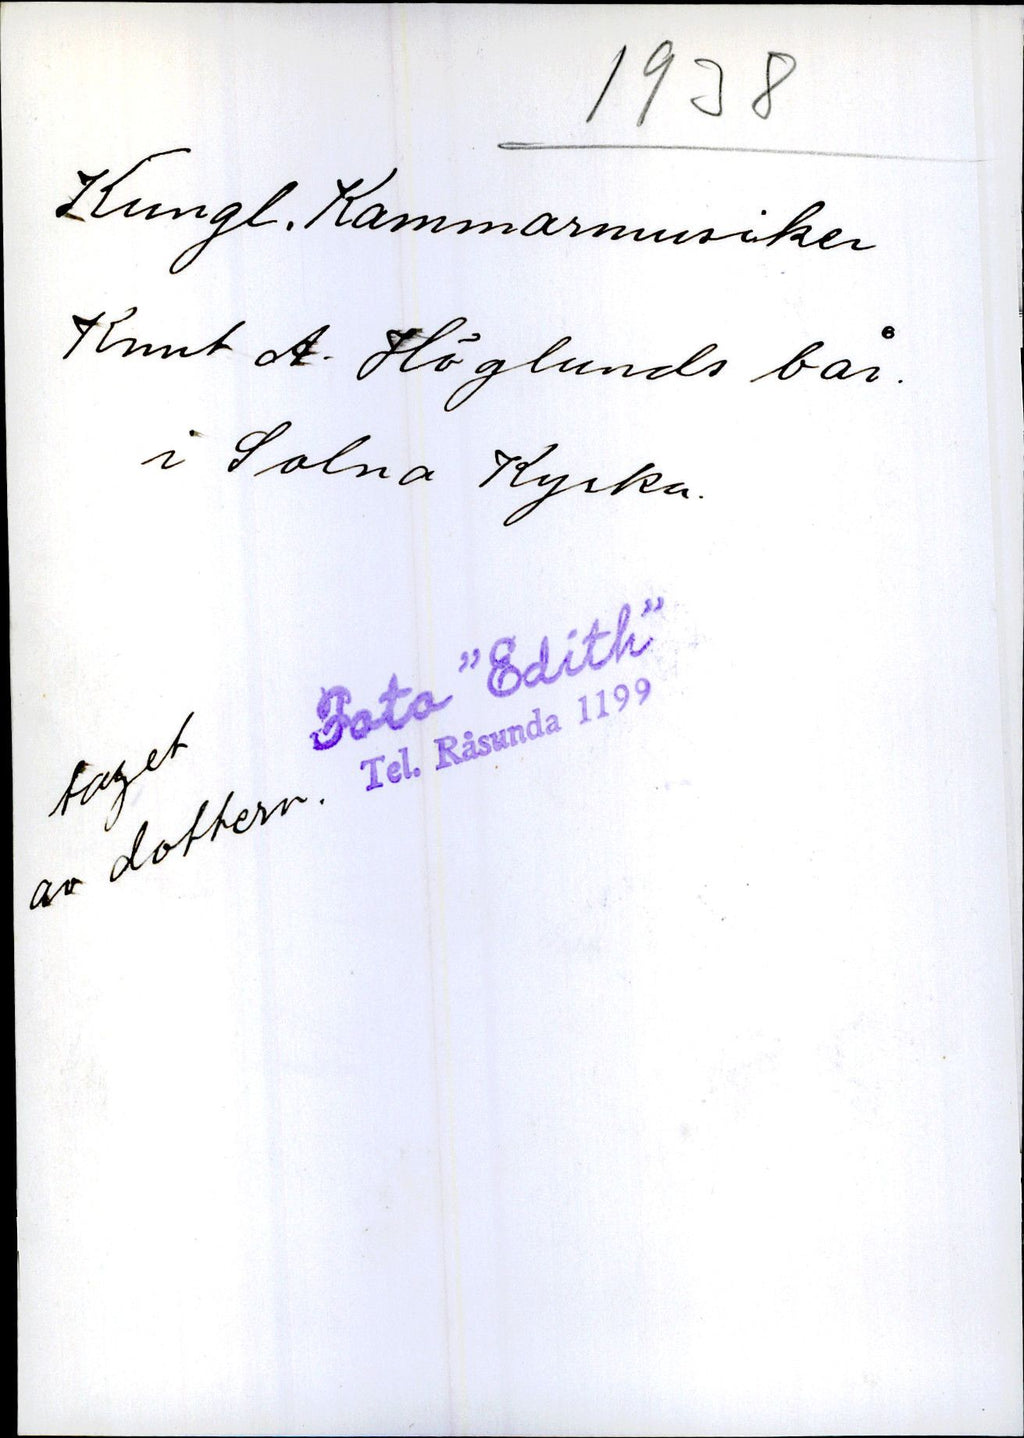 1938
Kungl. Kammarmusiker
Knut A. Höglunds bår.
i Solna Kyrka.
Foto "Edith"
Tel. Råsunda 1199
taget
av dottern.